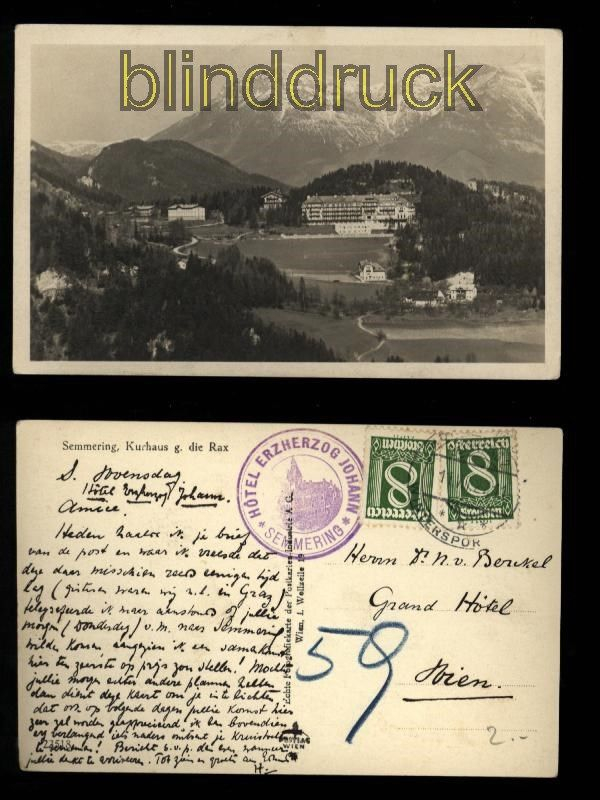 blinddruck
Semmering, Kurhaus g. die Rax
HÔTEL ERZHERZOG JOHANN
* SEMMERING *
Österreich
8
Groschen
Österreich
8
Groschen
S. Woensdag
Hôtel Erzherzog Johann.
Amice
Heden haalde ik je brief
van de post en waar ik vreesde dat
deze daar misschien reeds eenigen tijd
lag (gisteren waren wij n.l. en Graz)
telegrafeerde ik maar aanstonds of jullie
morgen (Donderdag) v.m. naar Semmering
wilde komen aangezien ik een samenkomst
hier ten zeerste op prijs zou stellen! Mochten
jullie morgen echter andere plannen hebben
dan dient deze kaart om je in te lichten
dat ook op volgende dagen jullie komst hier
zeer zal worden geapprecieerd ik ben bovendien
erg verlangend iets naders omtrent je
te vernemen! Bericht s.v.p. dan even wanneer
jullie denkt te arriveeren. Tot ziens en groeten
H.
22518
Echte Fotografiekarte der Postkarten-Industrie A. G.
Wien, I. Wollzeile
POSTIAG
WIEN
Herrn Dr. N. v. Berckel
Grand Hôtel
Wien.
59
2.-